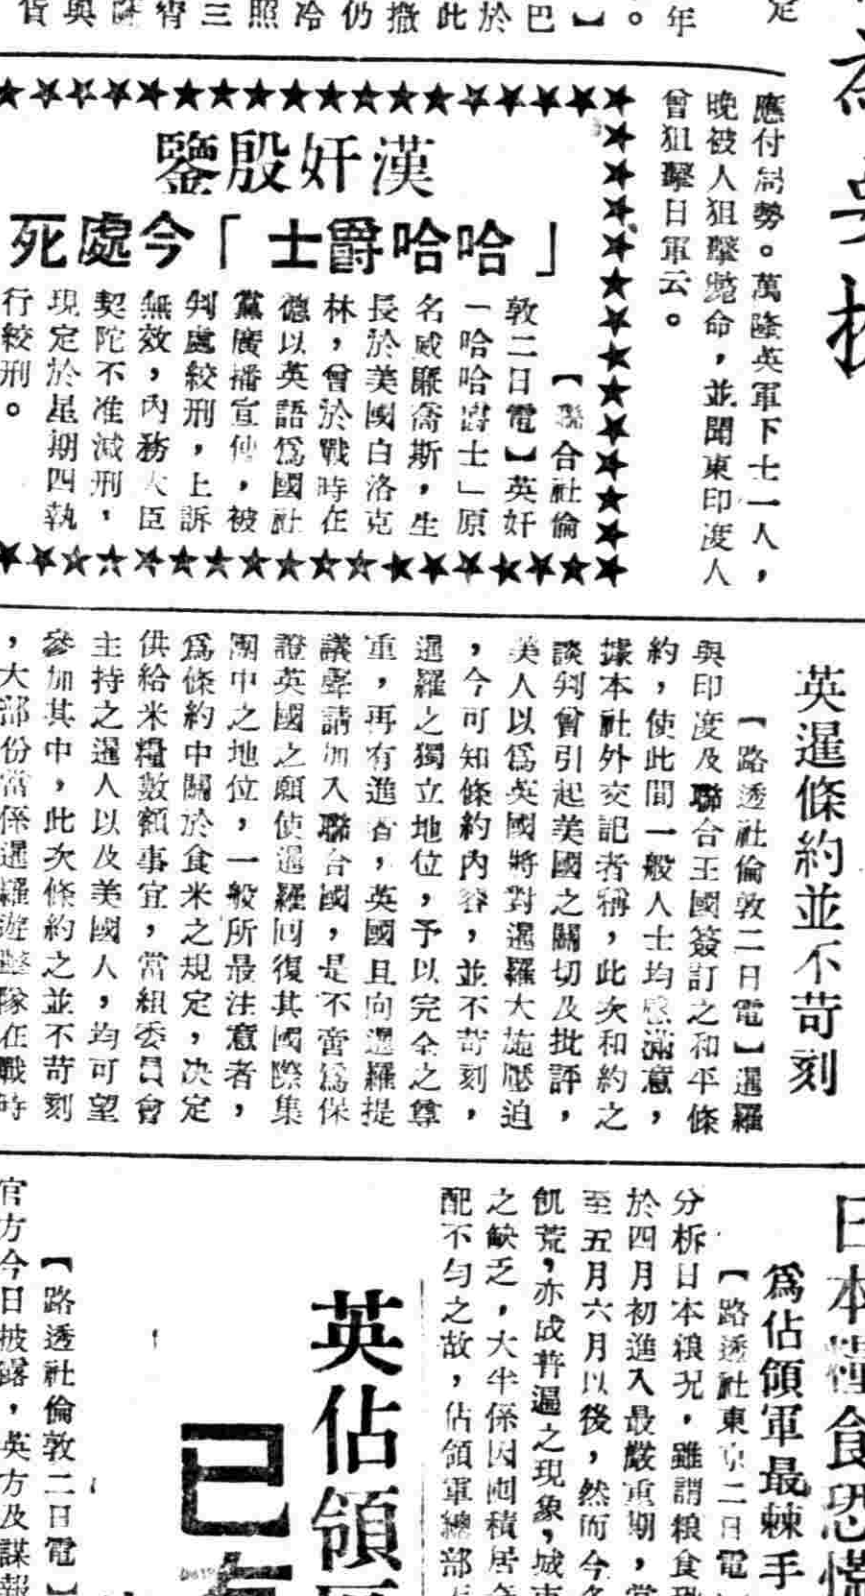 應付局勢。萬隆英軍下士一人，
晚被人狙擊斃命，並聞東印度人
曾狙擊日軍云。
漢奸殷鑒
「哈哈爵士」今處死
【聯合社倫
敦二日電】英奸
「哈哈爵士」原
名威廉喬斯，生
長於美國白洛克
林，曾於戰時在
德以英語爲國社
黨廣播宣傳，被
判處絞刑，上訴
無效，內務大臣
契陀不准減刑，
現定於星期四執
行絞刑。
英暹條約並不苛刻
【路透社倫敦二日電】暹羅
與印度及聯合王國簽訂之和平條
約，使此間一般人士均感滿意，
據本社外交記者稱，此次和約之
談判曾引起美國之關切及批評，
美人以爲英國將對暹羅大施壓迫
，今可知條約內容，並不苛刻，
暹羅之獨立地位，予以完全之尊
重，再有進者，英國且向暹羅提
議聲請加入聯合國，是不啻爲保
證英國之願使暹羅回復其國際集
團中之地位，一般所最注意者，
爲條約中關於食米之規定，決定
供給米糧數額事宜，當組委員會
主持之暹人以及美國人，均可望
參加其中，此次條約之並不苛刻
，大部份當係暹羅游擊隊在戰時
日本糧食恐慌
爲佔領軍最棘手
【路透社東京二日電
分析日本糧況，雖謂糧食
於四月初進入最嚴重期，
至五月六月以後，然而今
飢荒，亦成普遍之現象，城
之缺乏，大半係因囤積居
配不勻之故，佔領軍總部
英佔領
已
【路透社倫敦二日電】
官方今日披露，英方及諜報